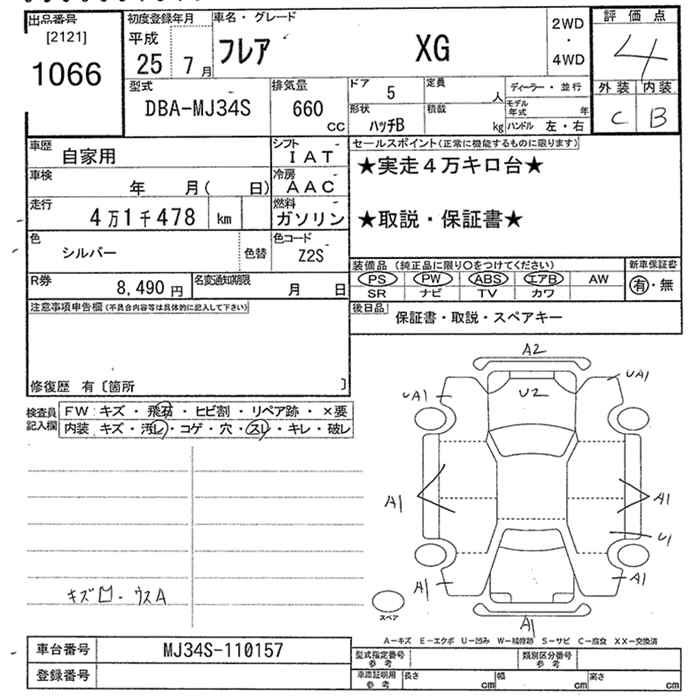 出品番号
[2121]
1066
初度登録年月
平成
25 7 月
車名・グレード
フレア XG
2WD
・
4WD
評価点
4
外装 内装
C B
型式
DBA-MJ34S
排気量
660
CC
ドア
5
形状
ハッチB
定員
人
積載
kg
ディーラー・並行
モデル
年式 年
ハンドル 左・右
車歴
自家用
シフト
IAT
車検
年 月( 日)
冷房
AAC
走行
4万1千478 km
燃料
ガソリン
色
シルバー
色替
色コード
Z2S
R券
8,490 円
名変通知期限
月 日
セールスポイント(正常に機能するものに限ります)
★実走4万キロ台★
★取説・保証書★
装備品(純正品に限り○をつけてください)
PS PW ABS エアB AW
SR ナビ TV カワ
新車保証書
有・無
後日品
保証書・取説・スペアキー
注意事項申告欄(不具合内容等は具体的に記入して下さい)
修復歴 有〔箇所 〕
検査員
記入欄
FW キズ・飛石・ヒビ割・リペア跡・×要
内装 キズ・汚れ・コゲ・穴・スレ・キレ・破レ
A2
UA1
U2
UA1
A1
A1
U1
A1
A1
A1
スペア
キズ ・ウスA
A-キズ E-エクボ U-凹み W-補修跡 S-サビ C-腐食 XX-交換済
車台番号
MJ34S-110157
登録番号
型式指定番号
参考
類別区分番号
参考
車庫証明用
参考
長さ cm
幅 cm
高さ cm